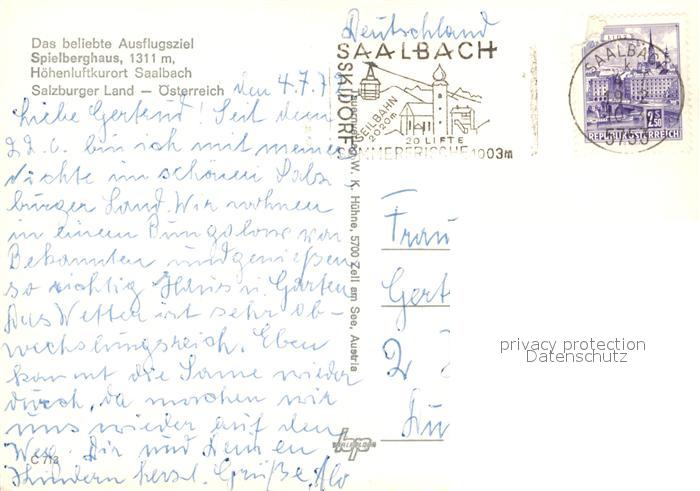 Das beliebte Ausflugsziel
Spielberghaus, 1311 m,
Höhenluftkurort Saalbach
Salzburger Land – Österreich
den 4.7.7
Liebe Gertrud! Seit dem
22.6. bin ich mit meiner
Nichte im schönen Salz
burger Land. Wir wohnen
in einem Bungalow von
Bekannten und genießen
so richtig Haus u. Garten
Das Wetter ist sehr ab-
wechslungsreich. Eben
kommt die Sonne wieder
durch, da machen wir
uns wieder auf den
Weg. Dir und Deinen
Kindern herzl. Grüße
C 713
W. K. Hühne, 5700 Zell am See, Austria
Deutschland
SAALBACH
SKIDORF
SEILBAHN
2020m
20 LIFTE
SOMMERFRISCHE 1003m
SAALBACH
5753
LINZ
2.50
REPUBLIK ÖSTERREICH
Frau
Gert
2
privacy protection
Datenschutz